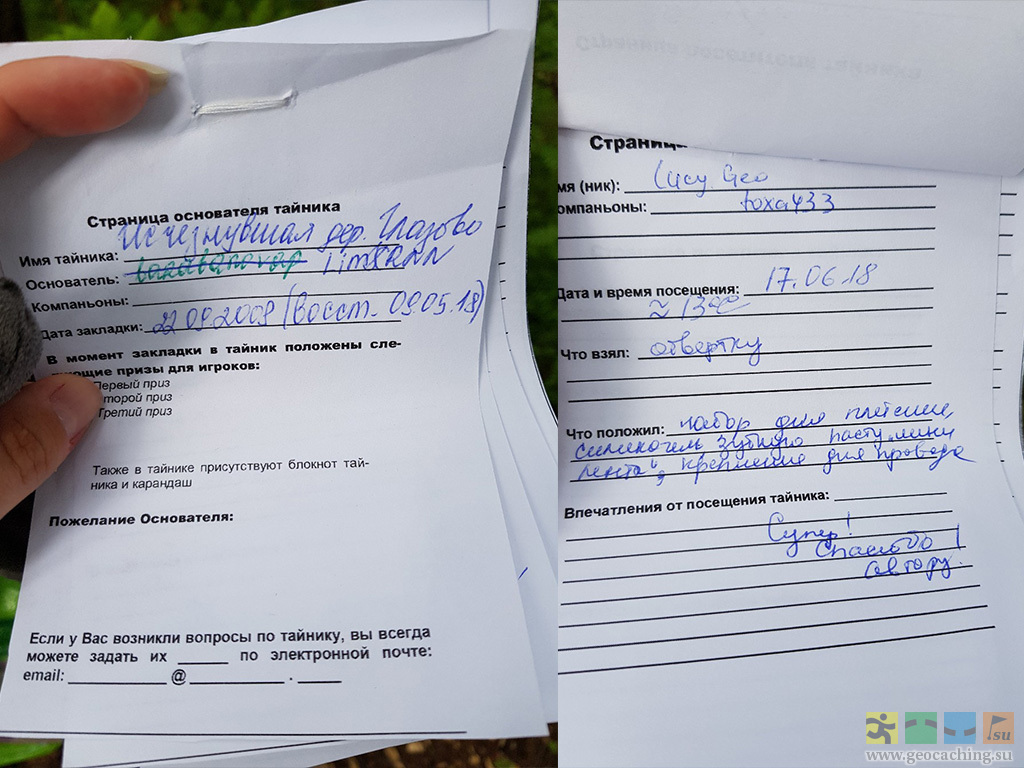 Страница основателя тайника
Имя тайника: Исчезнувшая дер. Глазово
Основатель:
Компаньоны:
Дата закладки: 22.09.2009 (Восст. 09.05.18)
В момент закладки в тайник положены сле-
ующие призы для игроков:
Первый приз
торой приз
Третий приз
Также в тайнике присутствуют блокнот тай-
ника и карандаш
Пожелание Основателя:
Если у Вас возникли вопросы по тайнику, вы всегда
можете задать их _____ по электронной почте:
email: __________ @ __________ . _____
Страниц
мя (ник): Lucy Geo
омпаньоны: toxa433
Дата и время посещения: 17.06.18
≈ 13⁰⁰
Что взял: отвертку
Что положил: набор для плетения,
силикагель, зубную пасту, мини
лента, крепление для провода
Впечатления от посещения тайника:
Супер!
Спасибо
автору.
su
www.geocaching.su